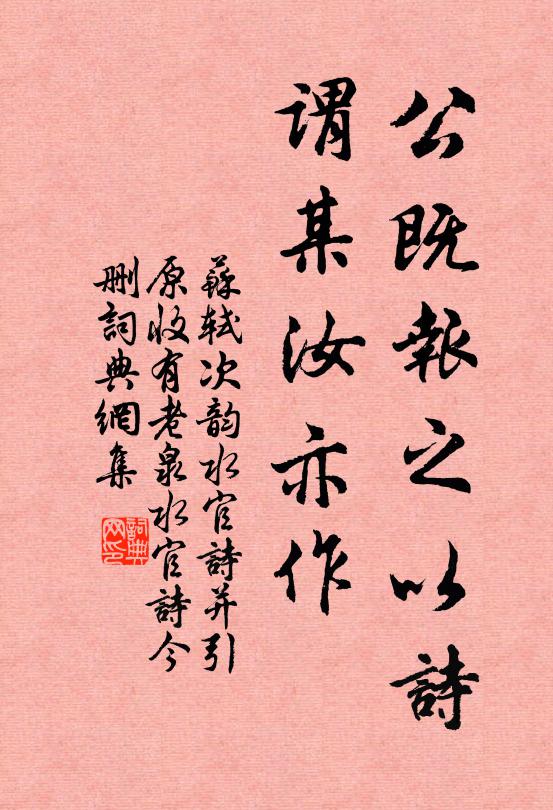 公既報之以詩
謂某汝亦作
蘇軾次韵水官詩并引
原收有老泉水官詩今
删詞典網集
詞典网印